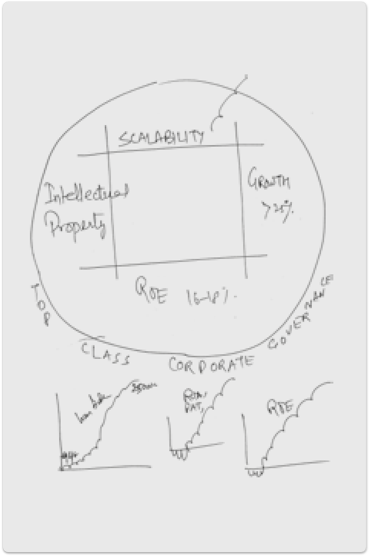 SCALABILITY
Intellectual
Property
GROWTH
>25%
ROE 16-18%
TOP CLASS CORPORATE GOVERNANCE
ROE